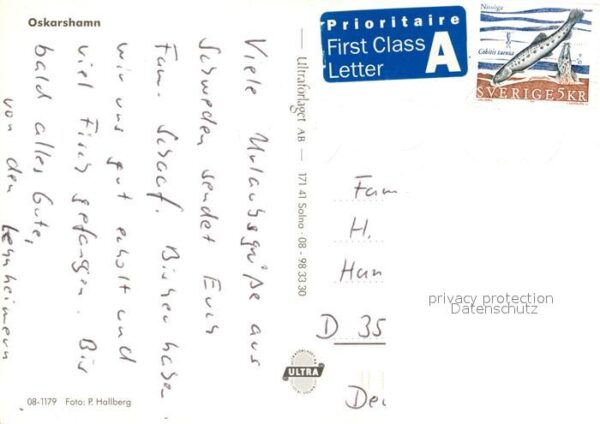 Oskarshamn
Viele Urlaubsgrüße aus
Schweden sendet Euch
Fam. Schaaf. Bisher haben
wir uns gut erholt und
viel Fisch gefangen. Bis
bald alles Gute,
von den
08-1179 Foto: P. Hallberg
Ultraförlaget AB — 171 41 Solna · 08 - 98 33 30
ULTRA
Prioritaire
First Class
Letter
A
Nissöga
Cobitis taenia
SVERIGE 5KR
Fam
H.
Han
D 35
privacy protection
Datenschutz